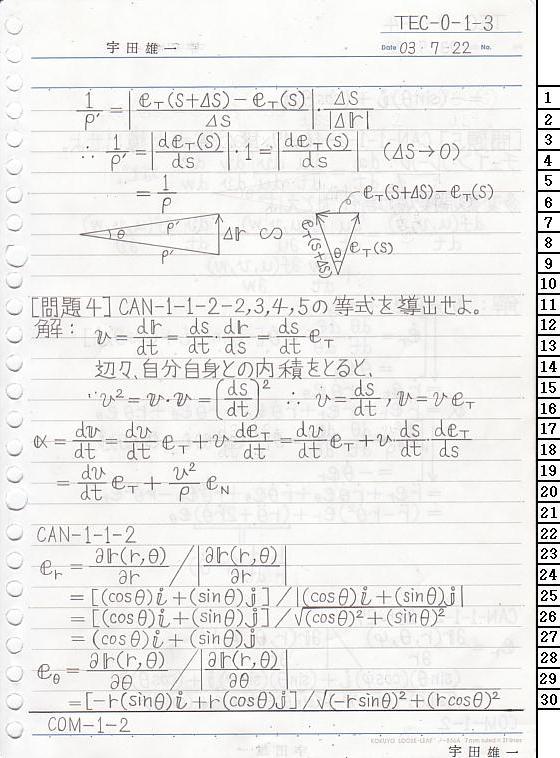 TEC-0-1-3
宇田雄一 Date 03・7・22 No.
1/ρ' = |𝕖_T(S+ΔS) − 𝕖_T(S) / ΔS| · ΔS/|Δ𝕣|
∴ 1/ρ' = |d𝕖_T(S)/ds| · 1 = |d𝕖_T(S)/ds| (ΔS→0)
= 1/ρ
𝕖_T(S+ΔS) − 𝕖_T(S)
θ ρ' ρ' Δ𝕣 ∽ 𝕖_T(S+ΔS) θ 𝕖_T(S)
[問題4] CAN-1-1-2-2,3,4,5の等式を導出せよ。
解: 𝕧 = d𝕣/dt = ds/dt · d𝕣/ds = ds/dt 𝕖_T
辺々、自分自身との内積をとると、
v² = 𝕧·𝕧 = (ds/dt)² ∴ v = ds/dt, 𝕧 = v𝕖_T
α = d𝕧/dt = dv/dt 𝕖_T + v d𝕖_T/dt = dv/dt 𝕖_T + v · ds/dt · d𝕖_T/ds
= dv/dt 𝕖_T + v²/ρ 𝕖_N
CAN-1-1-2
𝕖_r = ∂𝕣(r,θ)/∂r / |∂𝕣(r,θ)/∂r|
= [(cosθ)𝕚 + (sinθ)𝕛] / |(cosθ)𝕚 + (sinθ)𝕛|
= [(cosθ)𝕚 + (sinθ)𝕛] / √((cosθ)² + (sinθ)²)
= (cosθ)𝕚 + (sinθ)𝕛
𝕖_θ = ∂𝕣(r,θ)/∂θ / |∂𝕣(r,θ)/∂θ|
= [−r(sinθ)𝕚 + r(cosθ)𝕛] / √((−rsinθ)² + (rcosθ)²)
COM-1-2
宇田雄一
1
2
3
4
5
6
7
8
9
10
11
12
13
14
15
16
17
18
19
20
21
22
23
24
25
26
27
28
29
30